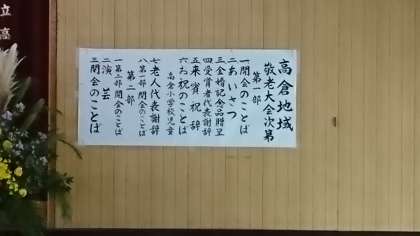 高倉地域
敬老大会次第
第一部
一 開会のことば
二 あいさつ
三 金婚記念品贈呈
四 受賞者代表謝辞
五 来賓祝辞
六 お祝のことば
高倉小学校児童
七 老人代表謝辞
八 第一部閉会のことば
第二部
一 第二部開会のことば
二 演芸
三 閉会のことば
立高